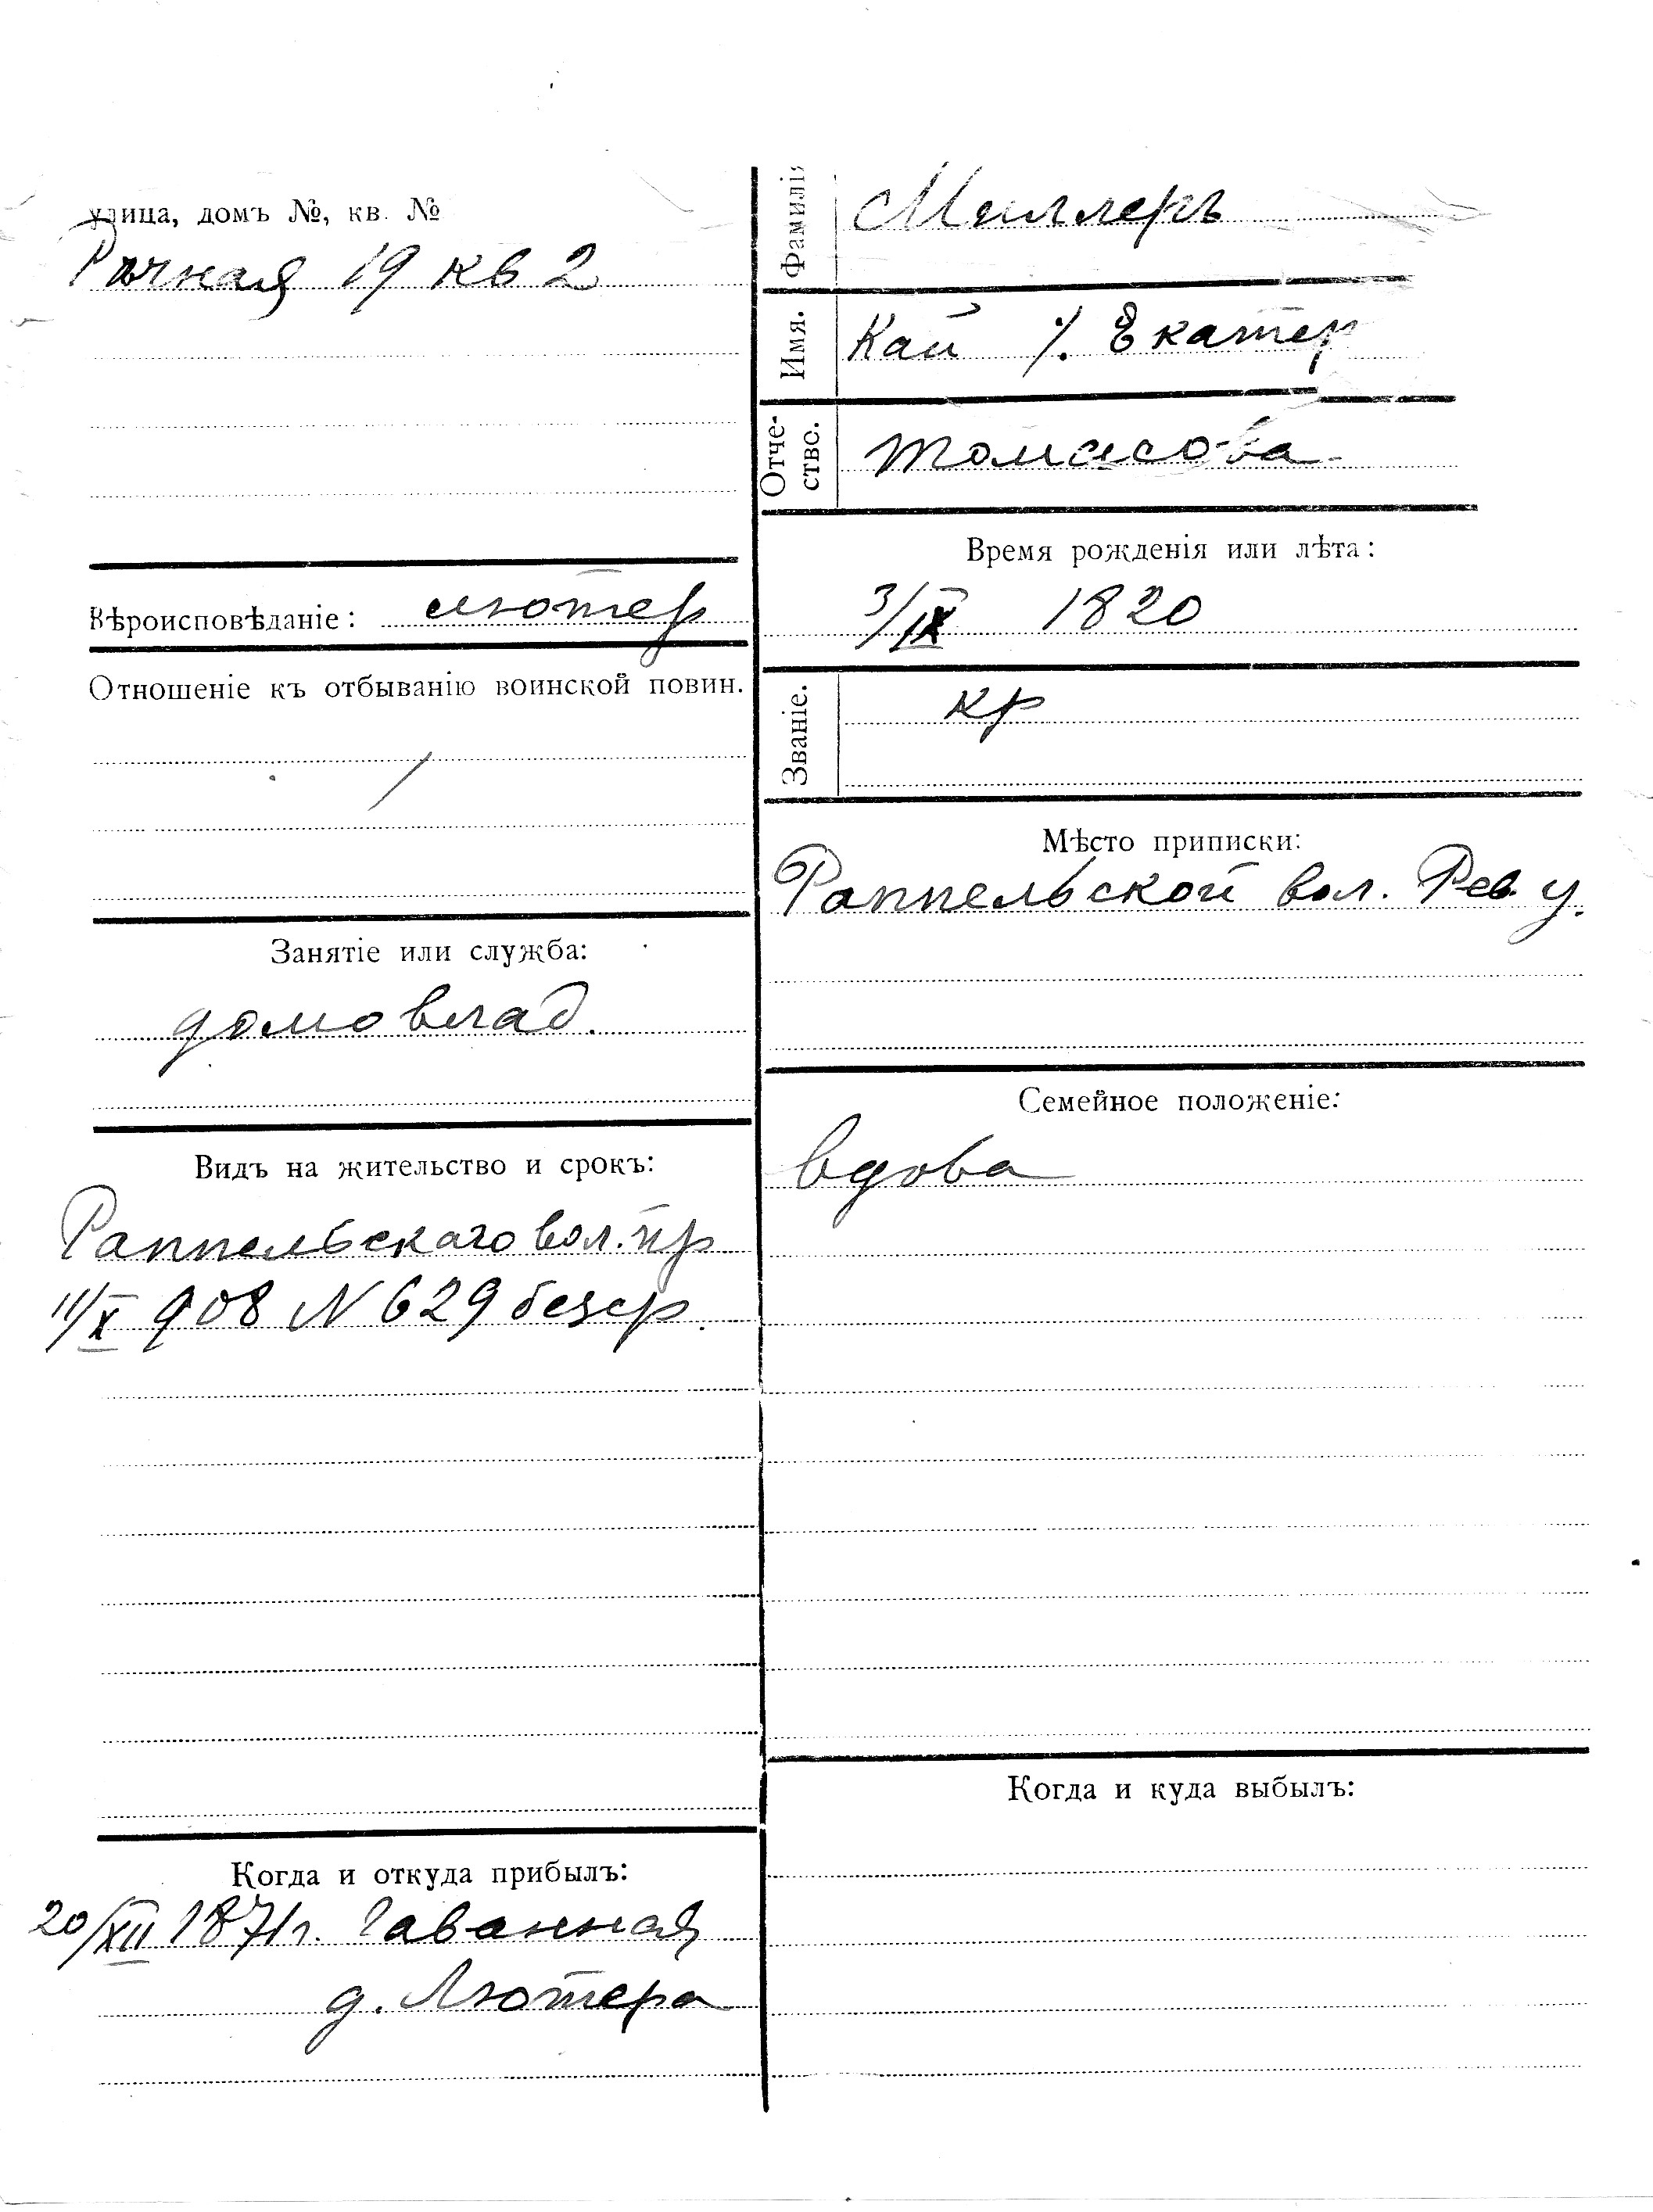 улица, домъ №, кв. №
19 кв 2
Вѣроисповѣданіе: лютер
Отношеніе къ отбыванію воинской повин.
/
Занятіе или служба:
домовлад.
Видъ на жительство и срокъ:
Раппельскаго вол. пр
11/X 908 N 629 безср.
Когда и откуда прибылъ:
20/XII 1871 г. Гаванная
д. Лютера
Фамилія
Миллеръ
Имя.
Кай %. Екатер
Отче-
ство.
Томасова
Время рожденія или лѣта:
3/IX 1820
Званіе.
кр
Мѣсто приписки:
Раппельской вол. Рев. у.
Семейное положеніе:
вдова
Когда и куда выбылъ: